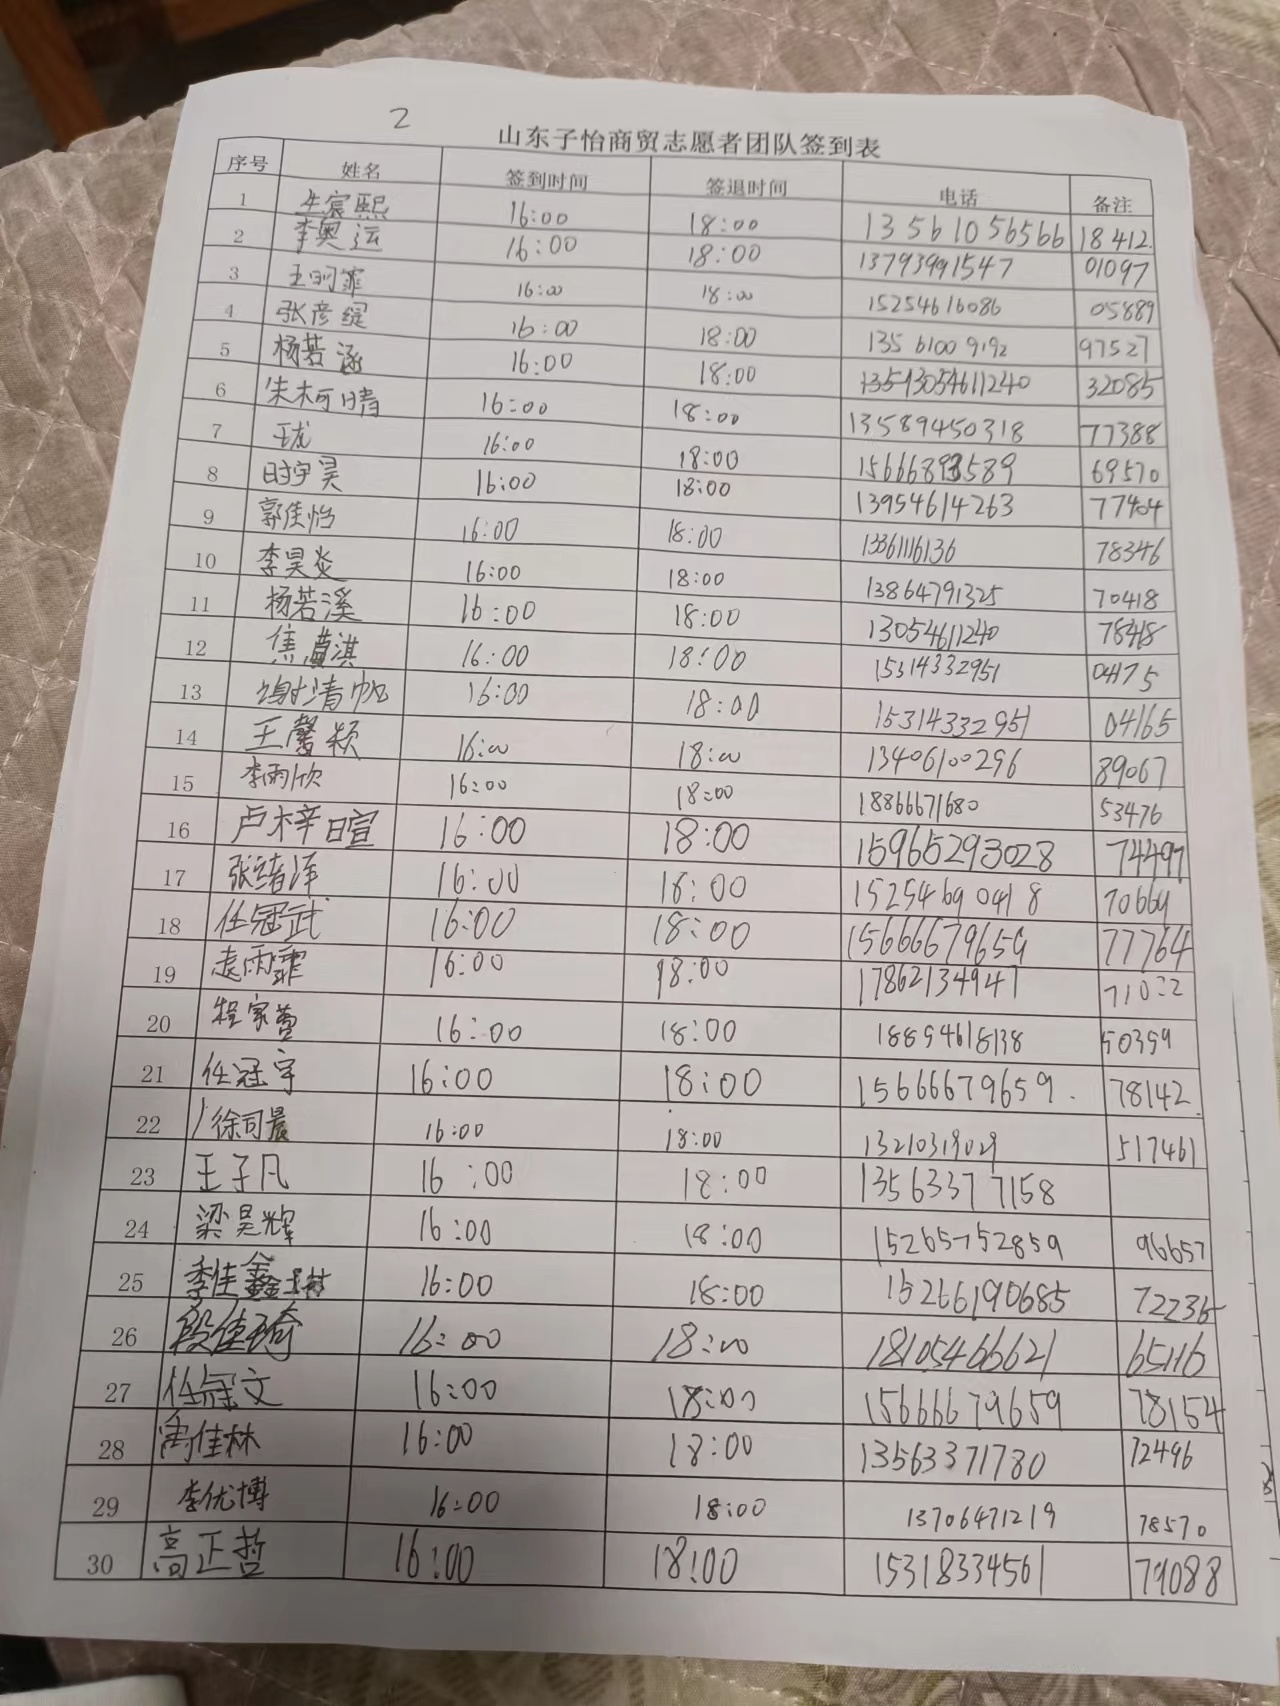 2
山东子怡商贸志愿者团队签到表
序号 姓名 签到时间 签退时间 电话 备注
1 牛宸熙 16:00 18:00 13561056566 18412
2 李奥运 16:00 18:00 13793991547 01097
3 王明霏 16:00 18:00 15254616086 05889
4 张彦绲 16:00 18:00 13561009192 97527
5 杨若涵 16:00 18:00 13513054611240 32085
6 朱柯晴 16:00 18:00 13589450318 77388
7 王龙 16:00 18:00 15666893589 69570
8 时宇昊 16:00 18:00 13954614263 77404
9 郭佳怡 16:00 18:00 13361116136 78346
10 李昊炎 16:00 18:00 13864791325 70418
11 杨若溪 16:00 18:00 13054611240 78418
12 焦淇 16:00 18:00 15314332951 04175
13 谢清帆 16:00 18:00 15314332951 04165
14 王馨颖 16:00 18:00 13406100296 89067
15 李雨欣 16:00 18:00 18866671680 53476
16 卢梓暄 16:00 18:00 15965293028 74497
17 张绪泽 16:00 18:00 15254690418 70669
18 任冠武 16:00 18:00 15666679659 77764
19 袁雨霏 16:00 18:00 17862134947 71022
20 程家萱 16:00 18:00 18854618138 50359
21 任冠宇 16:00 18:00 15666679659. 78142.
22 徐司晨 16:00 18:00 13210319029 517461
23 王子凡 16:00 18:00 13563377158
24 梁昊辉 16:00 18:00 15265752859 96657
25 李佳鑫 16:00 18:00 15266190685 72236
26 段佳琦 16:00 18:00 18105466621 65116
27 任冠文 16:00 18:00 15666679659 78154
28 禹佳林 16:00 18:00 13563371780 72496
29 李优博 16:00 18:00 13706471219 78570
30 高正哲 16:00 18:00 15318334561 79088